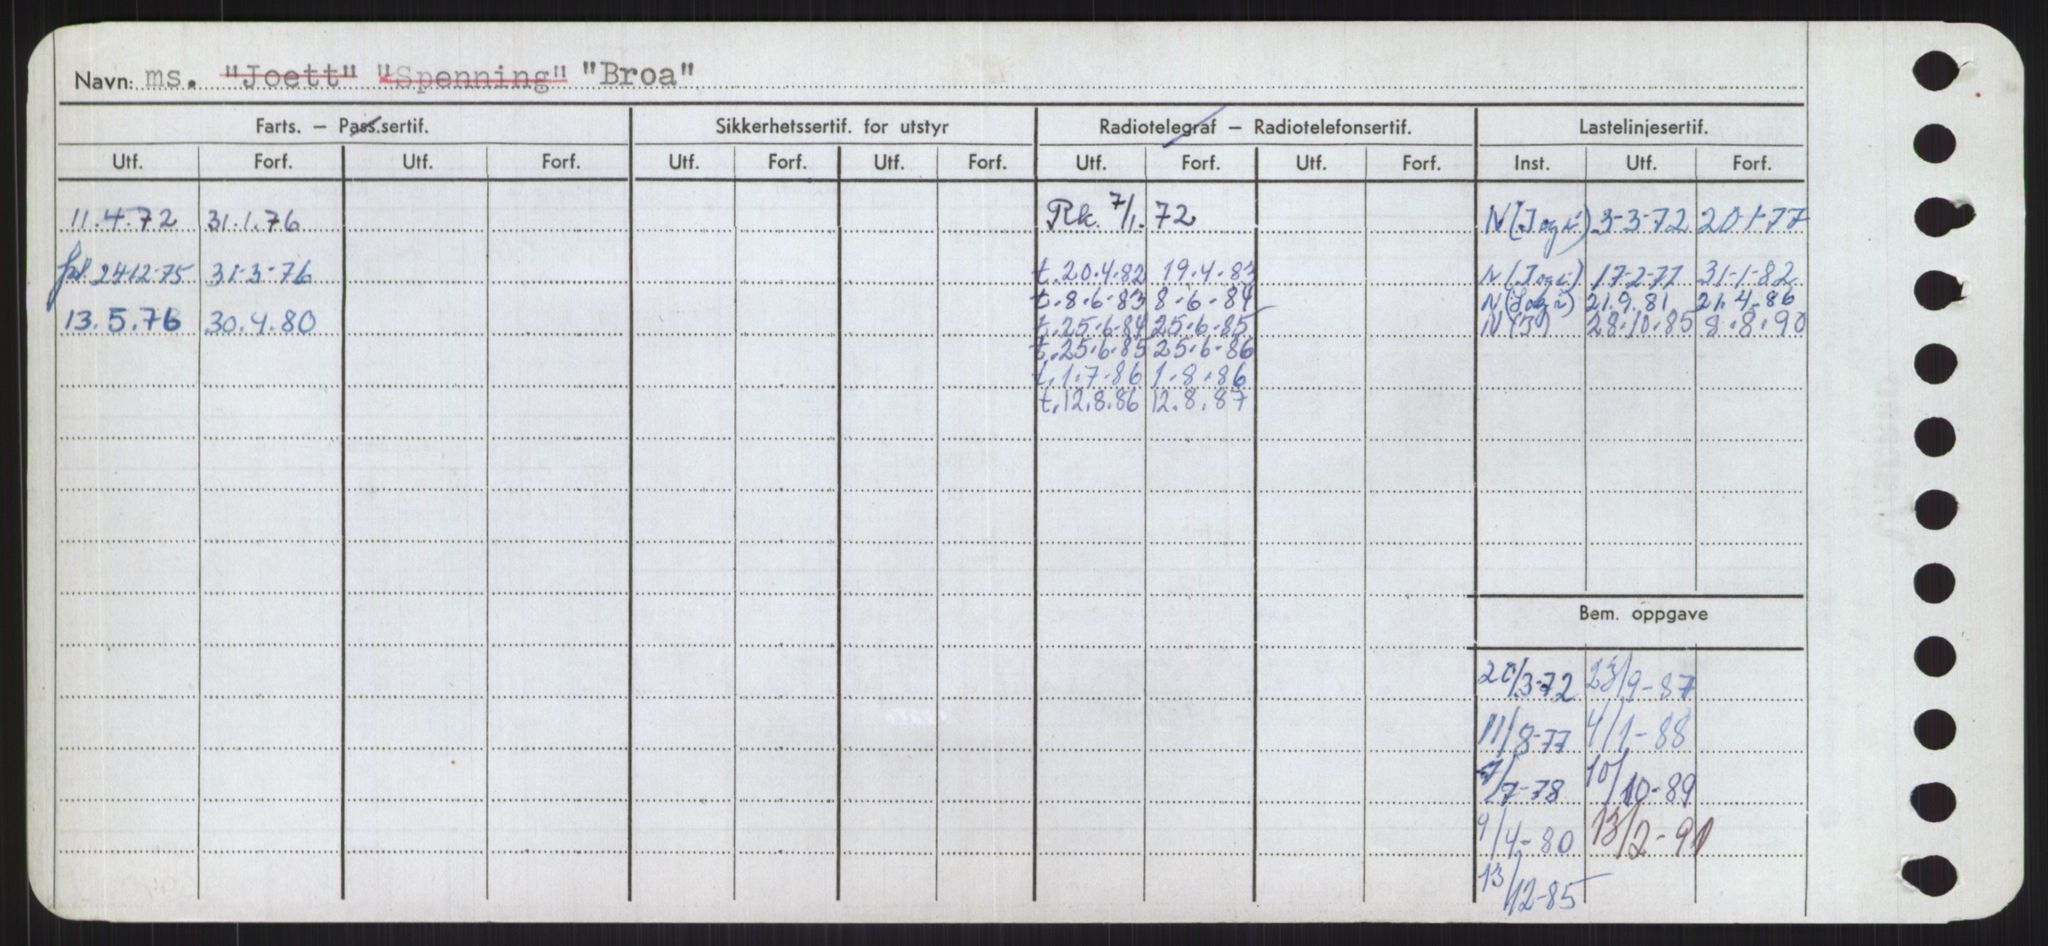 Navn: ms. "Joett" "Spenning" "Broa"
Farts. – Pass.sertif. Sikkerhetssertif. for utstyr Radiotelegraf – Radiotelefonsertif. Lastelinjesertif.
Utf. Forf. Utf. Forf. Utf. Forf. Utf. Forf. Utf. Forf. Utf. Forf. Inst. Utf. Forf.
11.4.72 31.1.76 Rk. 7/1.72 N 3-3-72 20-1-77
24-12-75 31-3-76 t.20.4.82 19.4.83 N 17-2-77 31-1-82
t.8.6.83 8.6.84 N 21.9.81 21.4.86
13.5.76 30.4.80 t.25.6.84 25.6.85 N(3) 28.10.85 8.8.90
t.25.6.85 25.6.86
t.1.7.86 1.8.86
t.12.8.86 12.8.87
Bem. oppgave
/3-72 23/9-87
11/8-77 4/1-88
/7-78 10/10-89
9/4-80 13/2-91
13/12-85